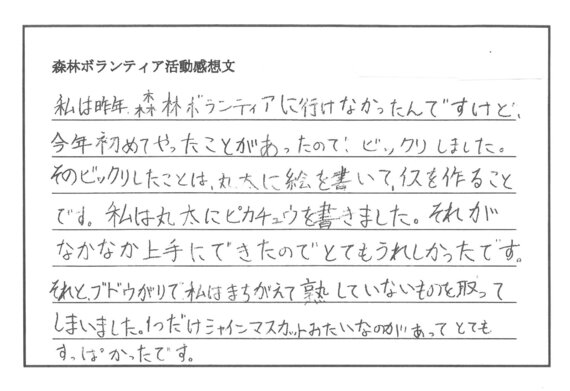 森林ボランティア活動感想文
私は昨年、森林ボランティアに行けなかったんですけど、
今年初めてやったことがあったので、ビックリしました。
そのビックリしたことは、丸太に絵を書いて、イスを作ること
です。私は丸太にピカチュウを書きました。それが
なかなか上手にできたのでとてもうれしかったです。
それと、ブドウがりで、私はまちがえて熟していないものを取って
しまいました。1つだけシャインマスカットみたいなのがあってとても
すっぱかったです。